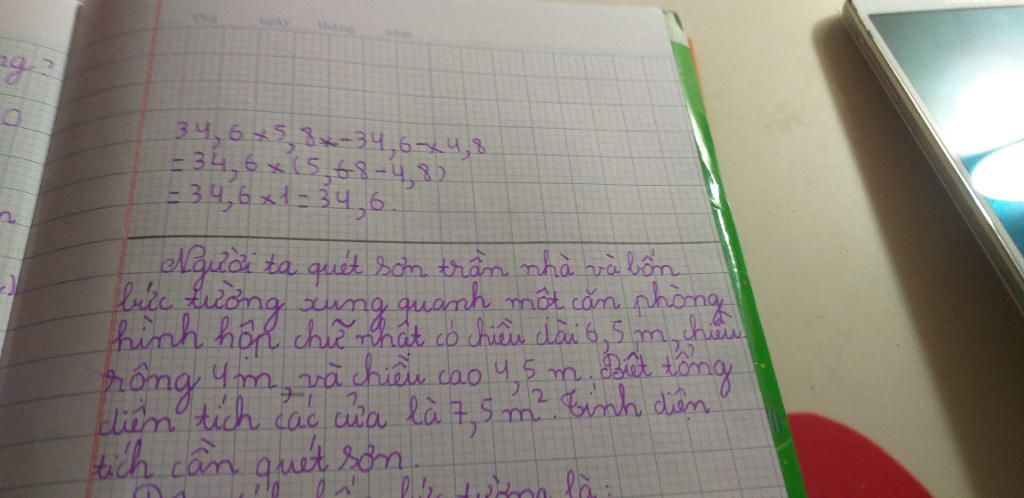 Thứ ngày tháng năm
34,6 × 5,8 × - 34,6 - × 4,8
= 34,6 × (5,68 - 4,8)
= 34,6 × 1 = 34,6.
Người ta quét sơn trần nhà và bốn
bức tường xung quanh một căn phòng
hình hộp chữ nhật có chiều dài 6,5 m, chiều
rộng 4m, và chiều cao 4,5 m. Biết tổng
diện tích các cửa là 7,5 m². Tính diện
tích cần quét sơn.
bức tường là: